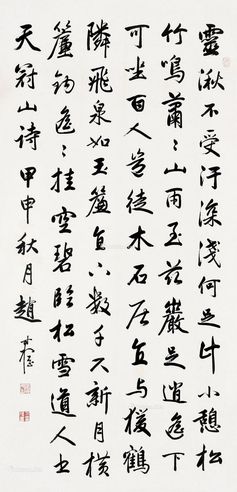 靈湫不受汙深淺何足計小憩松
竹鳴蕭〻山雨至茲巖足逍遙下
可坐百人豈徒木石居直與猨鶴
隣飛泉如玉簾直下數千尺新月橫
簾鉤遙〻挂空碧臨松雪道人書
天冠山詩甲申秋月趙